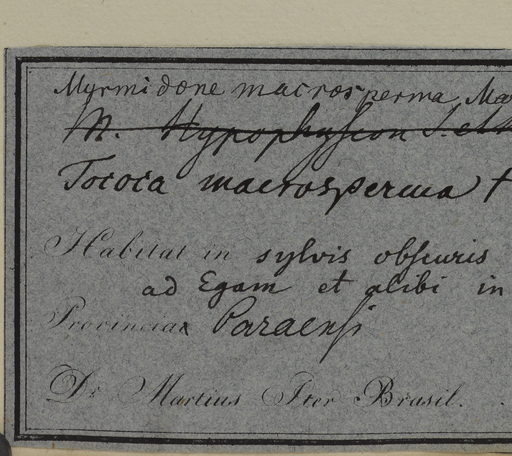 Myrmidone macrosperma Ma
M. Hypophyscon
Tococa macrosperma †
Habitat in sylvis obscuris
ad Egam et alibi in
Provinciae Paraensi
Dr. Martius Iter Brasil.